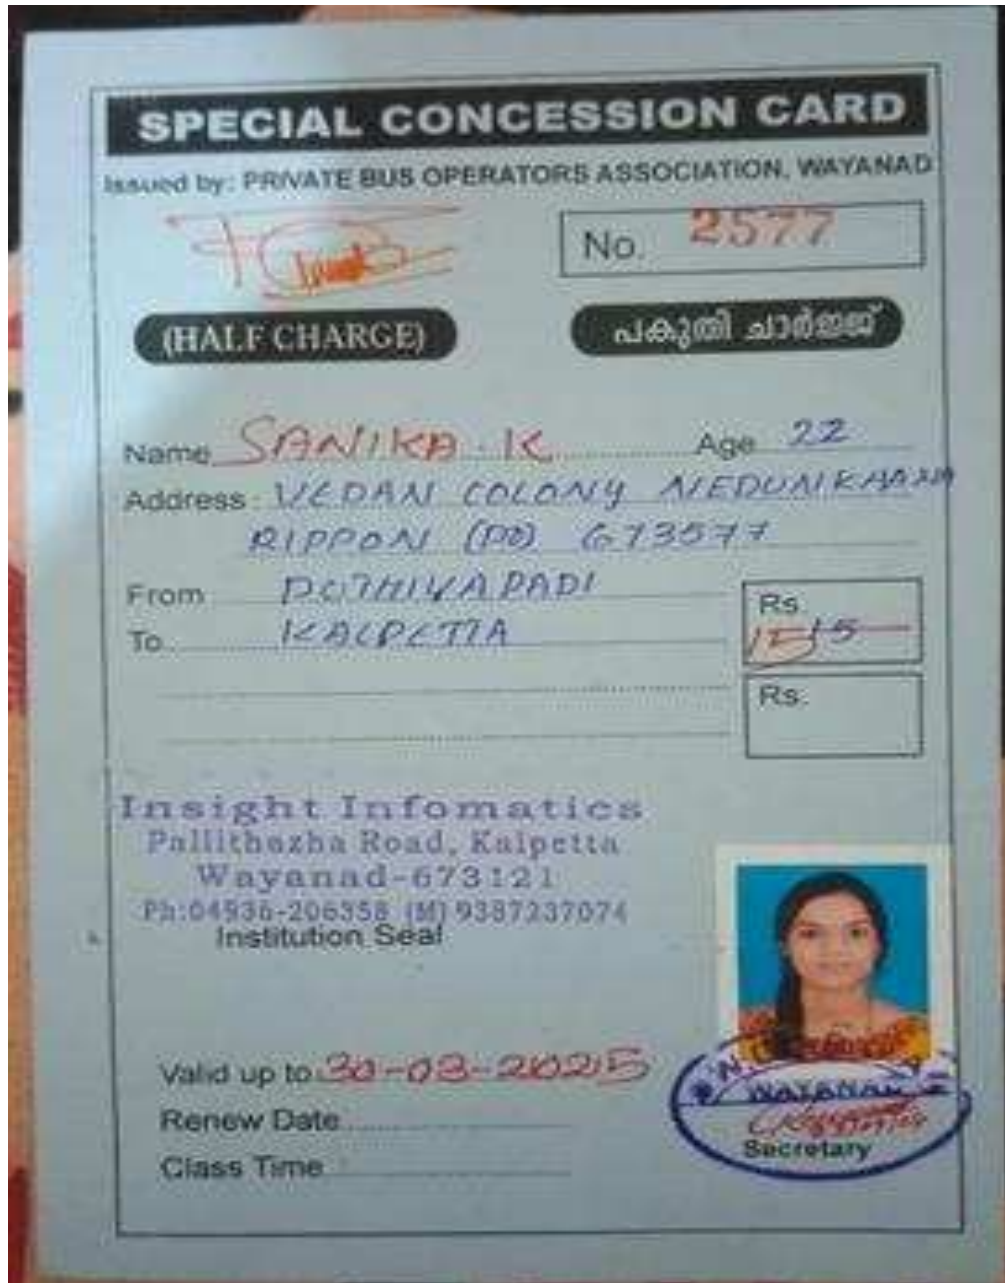 SPECIAL CONCESSION CARD
Issued by: PRIVATE BUS OPERATORS ASSOCIATION, WAYANAD
No. 2577
(HALF CHARGE) പകുതി ചാർജ്ജ്
Name SANIKA.K Age 22
Address: VEDAN COLONY
RIPPON (PO) 673577
From
To KALPETTA
Rs
15 15
Rs.
Insight Infomatics
Pallithazha Road, Kalpetta
Wayanad-673121
Ph:04936-206358 (M) 9387237074
Institution Seal
Valid up to 30-03-2025
Renew Date
Class Time
WAYANAD
Secretary